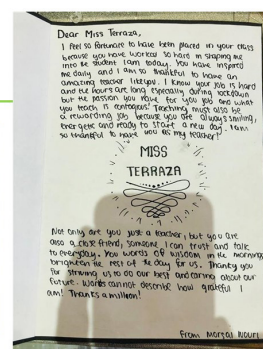 Dear Miss Terraza,
I feel so fortunate to have been placed in your class
because you have worked so hard in shaping me
into the student I am today. You have inspired
me daily and I am so thankful to have an
amazing teacher like you. I know your job is hard
and the hours are long especially during lockdown
but the passion you have for you job and what
you teach is contagious! Teaching must also be
a rewarding job because you are always smiling,
energetic and ready to start a new day. I am
so thankful to have you as my teacher!
MISS
TERRAZA
Not only are you just a teacher, but you are
also a close friend, someone I can trust and talk
to everyday. You words of wisdom in the mornings
brighten the rest of the day for us. Thank you
for striving us to do our best and caring about our
future. Words cannot describe how grateful I
am! Thanks a million!
From Mortal Nouri